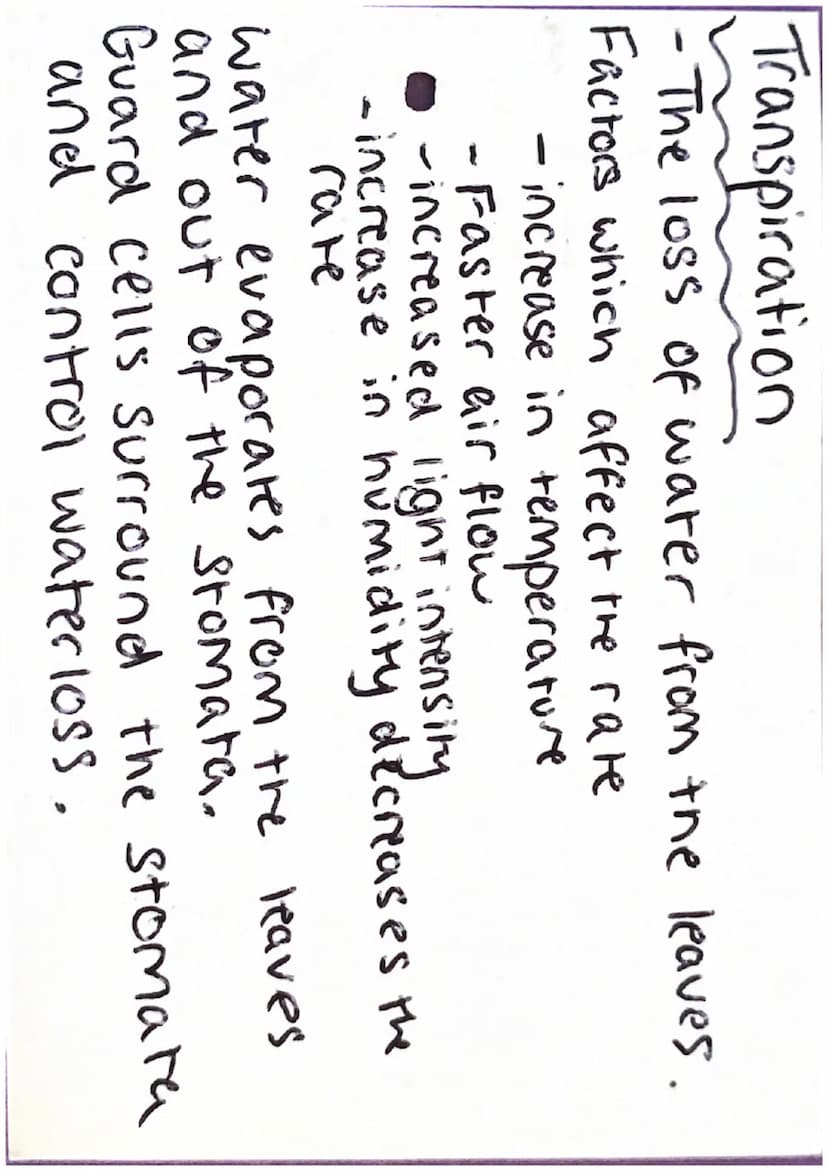 Transpiration
- The loss of water from the leaves.
Factors which affect the rate
- increase in temperature
- Faster air flow
- increased light intensity
- increase in humidity decreases the
rate
Water evaporates from the leaves
and out of the stomata.
Guard cells surround the stomata
and control water loss.